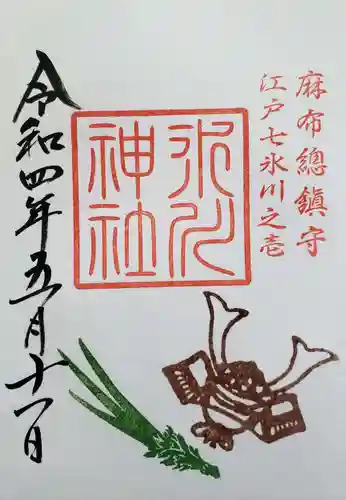 麻布總鎮守
江戸七氷川之壱
氷川神社
令和四年五月十一日